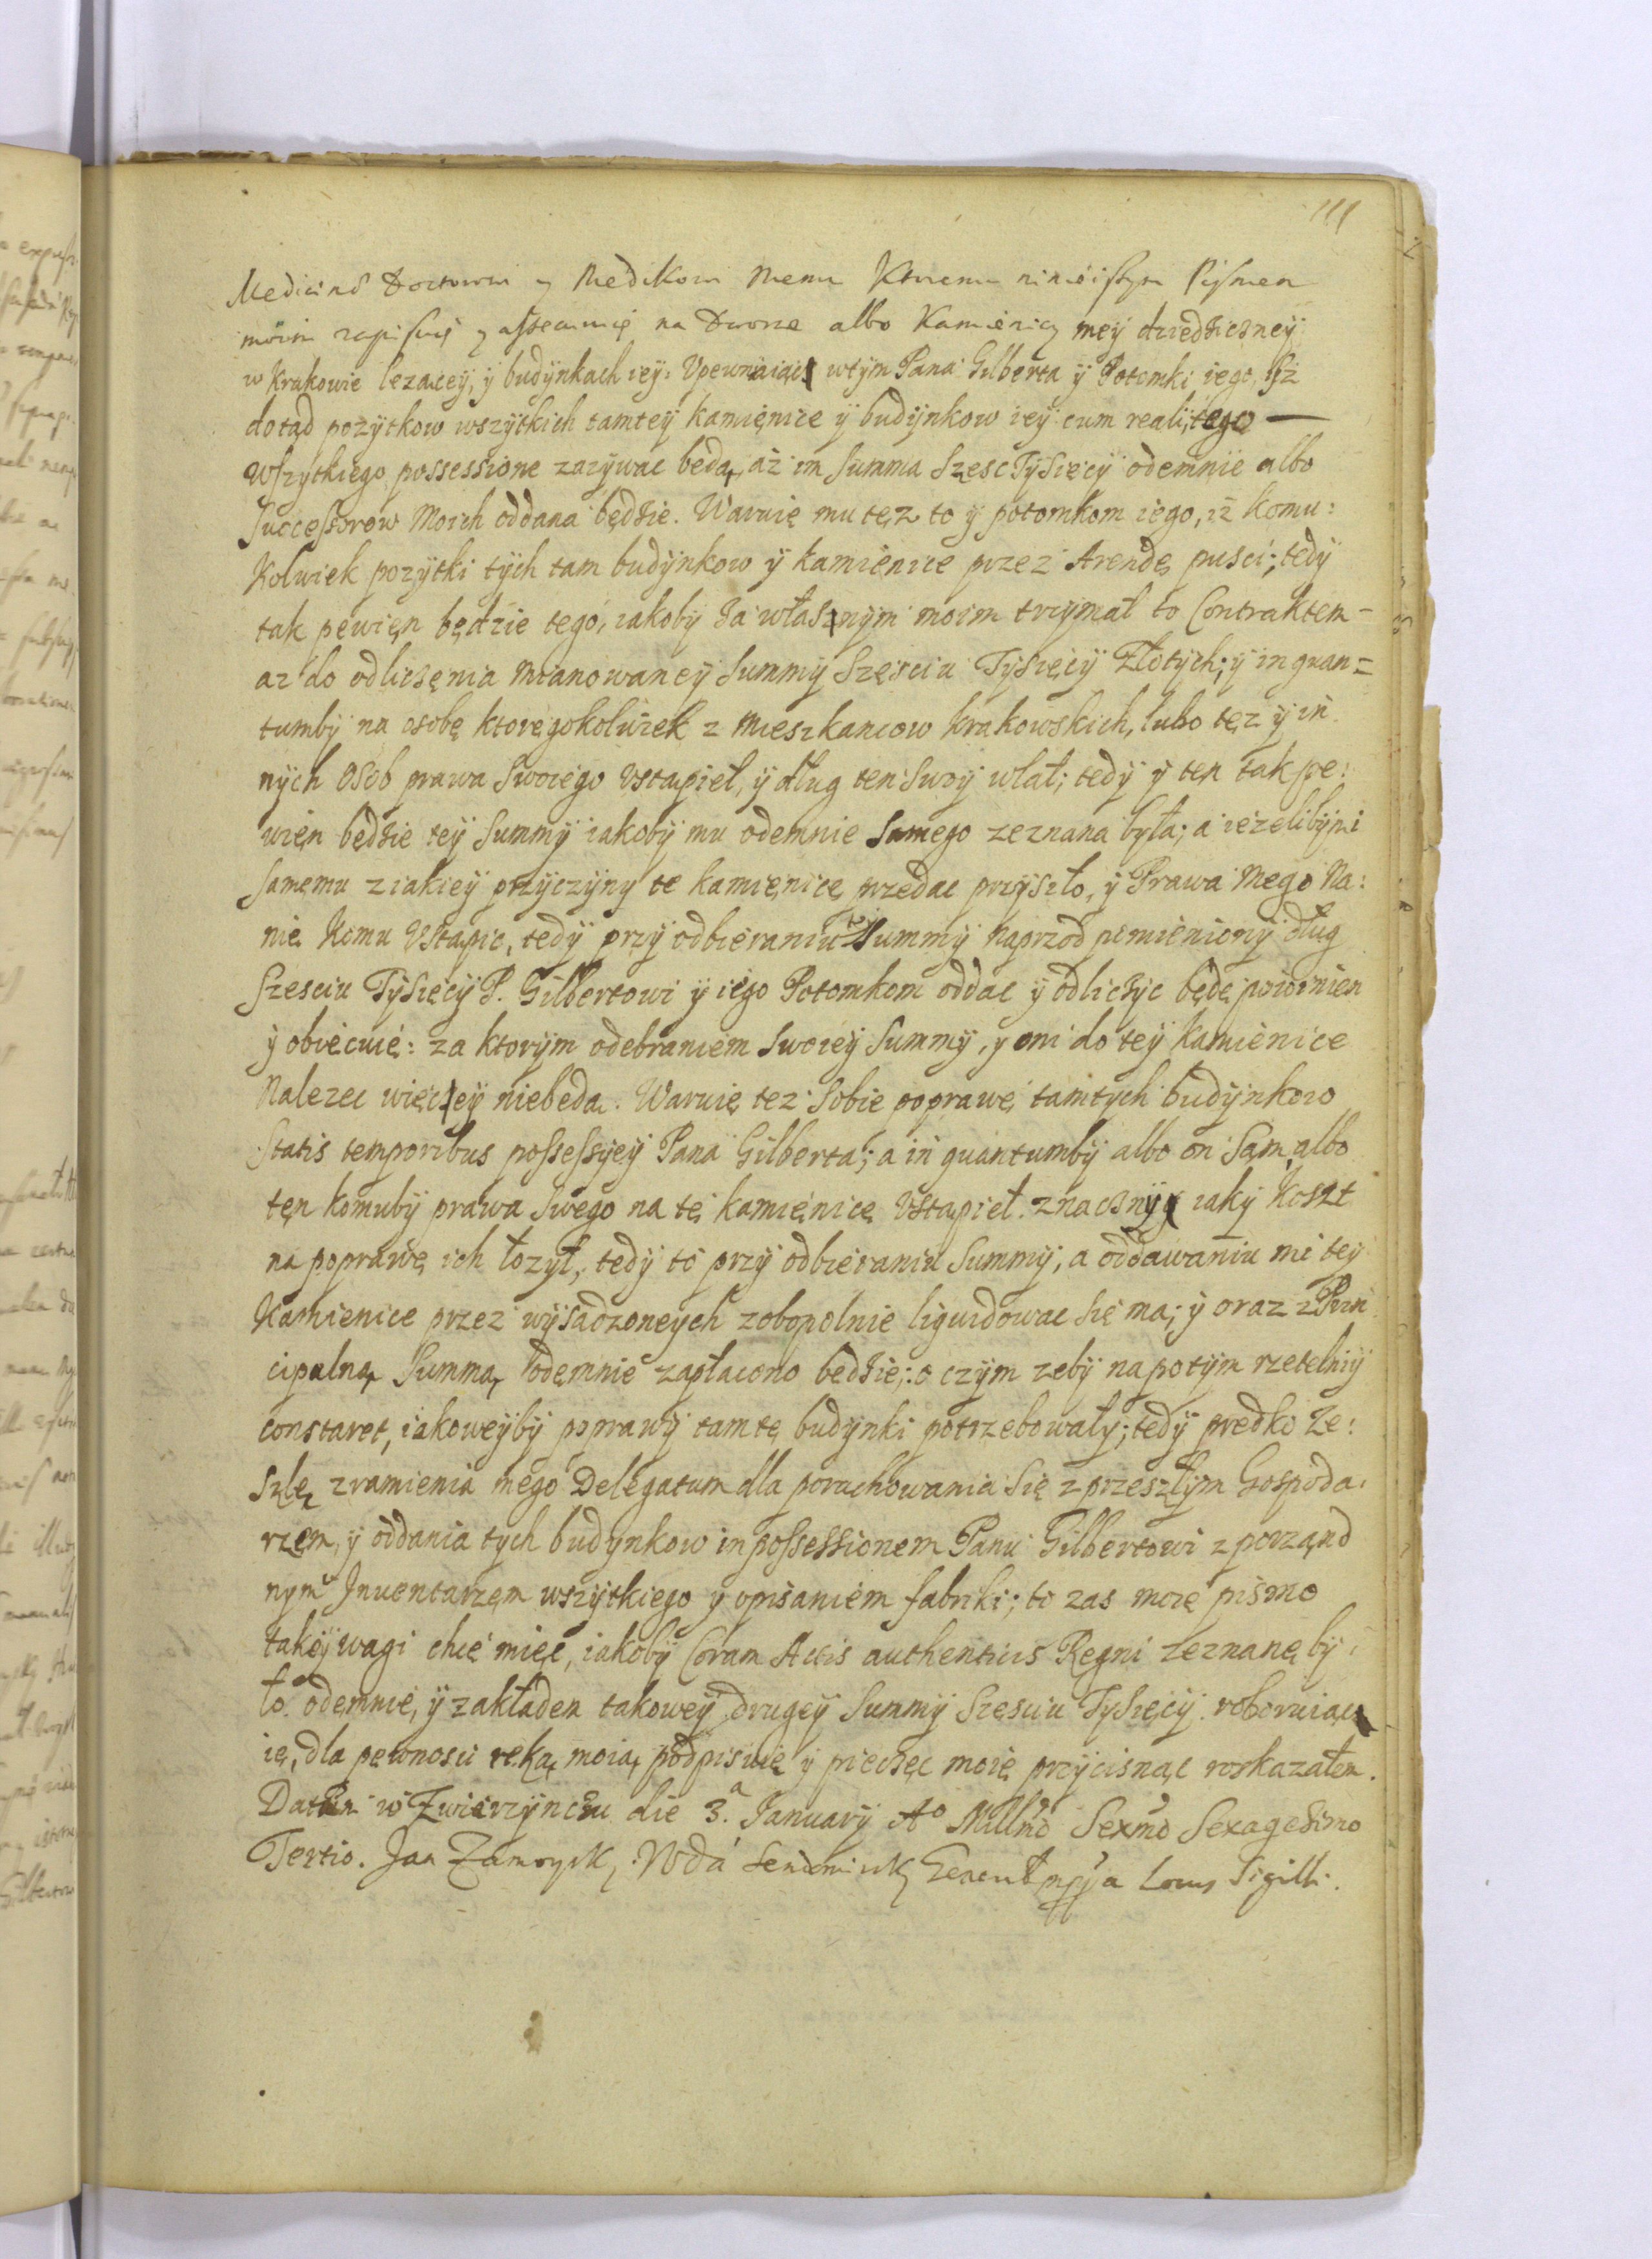 111
Medicinæ Doctorowi y Medikowi Memu Ktoremu ninieiszym Pismem
moim zapisuię y assecuruię na Dworze albo Kamienicy meÿ dziedzicznęÿ
w Krakowie lezaceÿ, ÿ budÿnkach ieÿ. Vpewniaiac wtÿm Pana Gilberta ÿ Potomki iego, Iż
dotąd pożÿtkow wszÿtkich tamteÿ kamięnice ÿ budÿnkow ieÿ cum reali, tego —
Wszÿtkiego possessione zazÿwac bedą, aż im summa szesc Tÿsięcÿ odemnie albo
Successorow Moich oddana będzie. Waruię mu tęz to ÿ potomkom iego, iż komu:
Kolwiek pozÿtki tÿch tam budÿnkow ÿ kamienice przez Arendę pusci; tedÿ
tak pewięn będzie tego, iakobÿ Ja własnÿm moim trzÿmał to Contraktem –
az do odliczęnia Mianowaneÿ Summÿ Szęsciu Tÿsięcÿ Złotÿch; ÿ inquan=
tumbÿ na osobę ktoregokolwiek z Mieszkancow Krakowskich, lubo tęz ÿ in
nÿch Osob prawa Swoiego Vstąpieł, ÿ dług ten Swoÿ wlał; tedÿ ÿ ten tak pe:
więn będzie teÿ Summÿ iakobÿ mu odemnie samego zeznana bÿła; a ieżelibÿ mi
samemu z iakieÿ przÿczÿnÿ te kamięnicę przedac przÿszło, ÿ Prawa Mego Na:
nię Komu Vstąpic, tedÿ przÿ odbieraniu teÿ Summÿ naprzod pomienionÿ dług
Szesciu Tÿsięcÿ P. Gilbertowi ÿ iego Potomkom oddac ÿ odliczÿc będę powinien
ÿ obiecuię: za ktorÿm odebraniem swoieÿ Summÿ, y oni do teÿ Kamienice
Nalezec więceÿ niebedą. Waruię tez sobie poprawę tamtych budÿnkow
statis temporibus possessÿeÿ Pana Gilberta; a in quantumbÿ albo on Sam, albo
tęn komubÿ prawa Swego na tę kamięnicę Vstąpieł znacznÿ iakÿ Koszt
na poprawę ich łozÿł, tedÿ to przÿ odbieraniu Summÿ, a oddawaniu mi teÿ
Kamienice przez wÿsadzoneÿch zobopolnie liquidowac się ma; ÿ oraz z Prin
cipalną Summą odęmnie zapłacono bedzie; o czÿm zebÿ napotÿm rzetelniÿ
constaret, iakoweÿbÿ poprawÿ tamtę budynki potrzebowałÿ; tedÿ prędko Ze:
szlę z ramienia mego Delegatum dla porachowania się z przeszłÿm Gospoda:
rzęm, ÿ oddania tÿch budÿnkow in possessionem Panu Gilbertowi z porządnd
nym Jnuentarzęm wszÿtkiego ÿ opisaniem fabriki; to zas moię pismo
takeÿ wagi chcę mięc, iakobÿ Coram Actis authenticis Regni zeznanę bÿ
ło odemnie, ÿ zakładem takoweÿ drugeÿ Summÿ Szesciu Tÿsięcÿ roboruiąc
ię, dla pęwnosci ręką moią podpisuię ÿ pieczęc moię przÿcisnąc roskazałem.
Datum w Zwierzÿncu die 3.a Januarÿ Ao Millmo Sexmo Sexagesimo
Tertio. Jan Zamoysky Wda Sendomirsky Generał mppa Locus Sigilli.